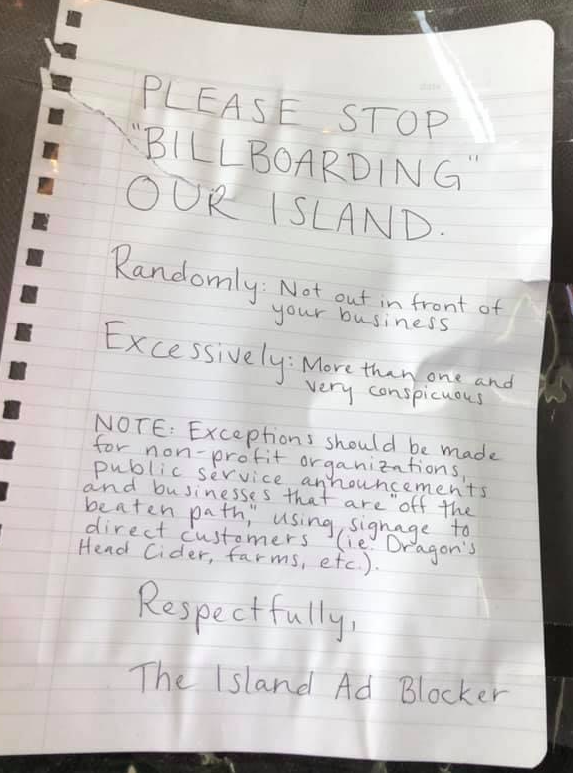 PLEASE STOP
"BILLBOARDING"
OUR ISLAND.
Randomly: Not out in front of
your business
Excessively: More than one and
very conspicuous
NOTE: Exceptions should be made
for non-profit organizations,
public service announcements
and businesses that are "off the
beaten path," using signage to
direct customers (ie. Dragon's
Head Cider, farms, etc.).
Respectfully,
The Island Ad Blocker